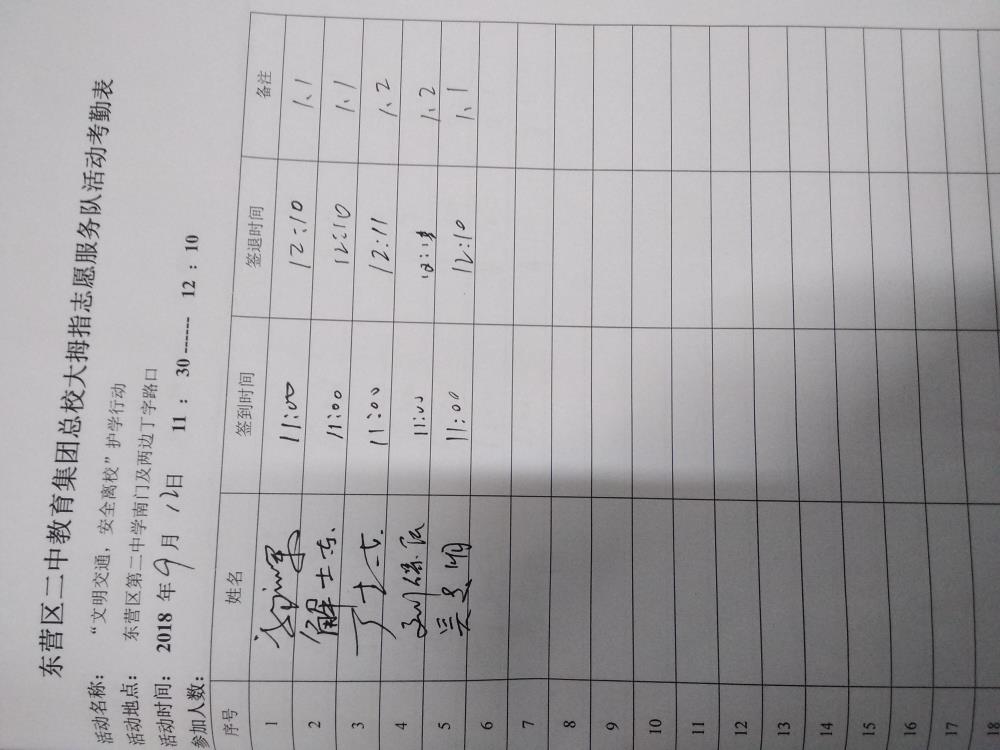 东营区二中教育集团总校大拇指志愿服务队活动考勤表
活动名称： “文明交通，安全离校”护学行动
活动地点： 东营区第二中学南门及两边丁字路口
活动时间： 2018 年 9 月 12 日 11 ： 30 ------ 12 ： 10
参加人数：
序号 姓名 签到时间 签退时间 备注
1 11:00 12:10 1、1
2 解士东 11:00 12:10 1、1
3 丁士 11:00 12:11 1、2
4 11:00 1、2
5 吴 明 11:00 12:10 1、1
6
7
8
9
10
11
12
13
14
15
16
17
18